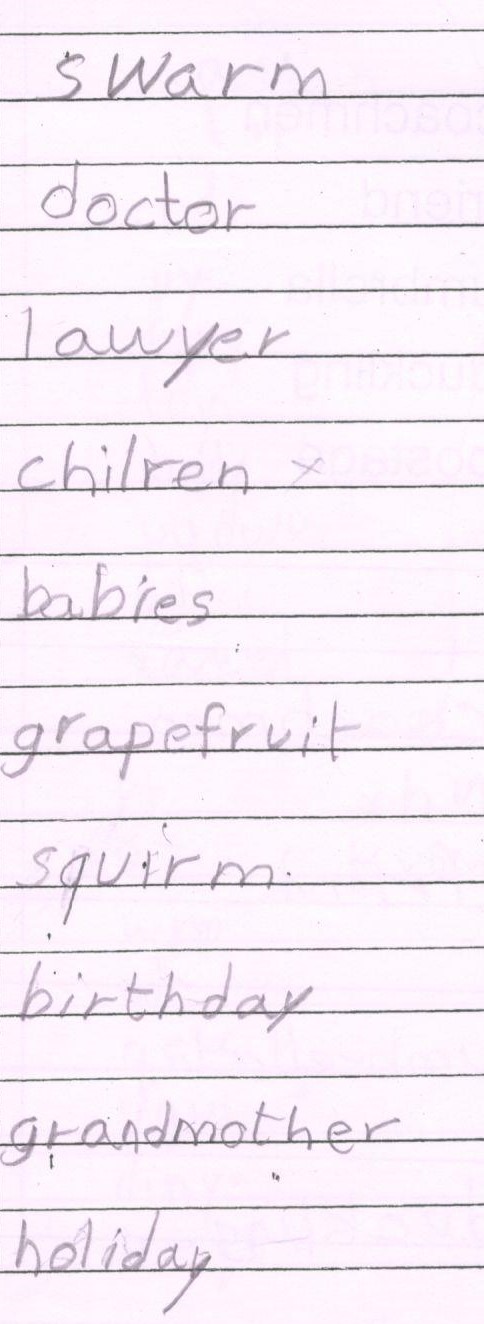 swarm
doctor
lawyer
chilren ×
babies
grapefruit
squirm
birthday
grandmother
holiday